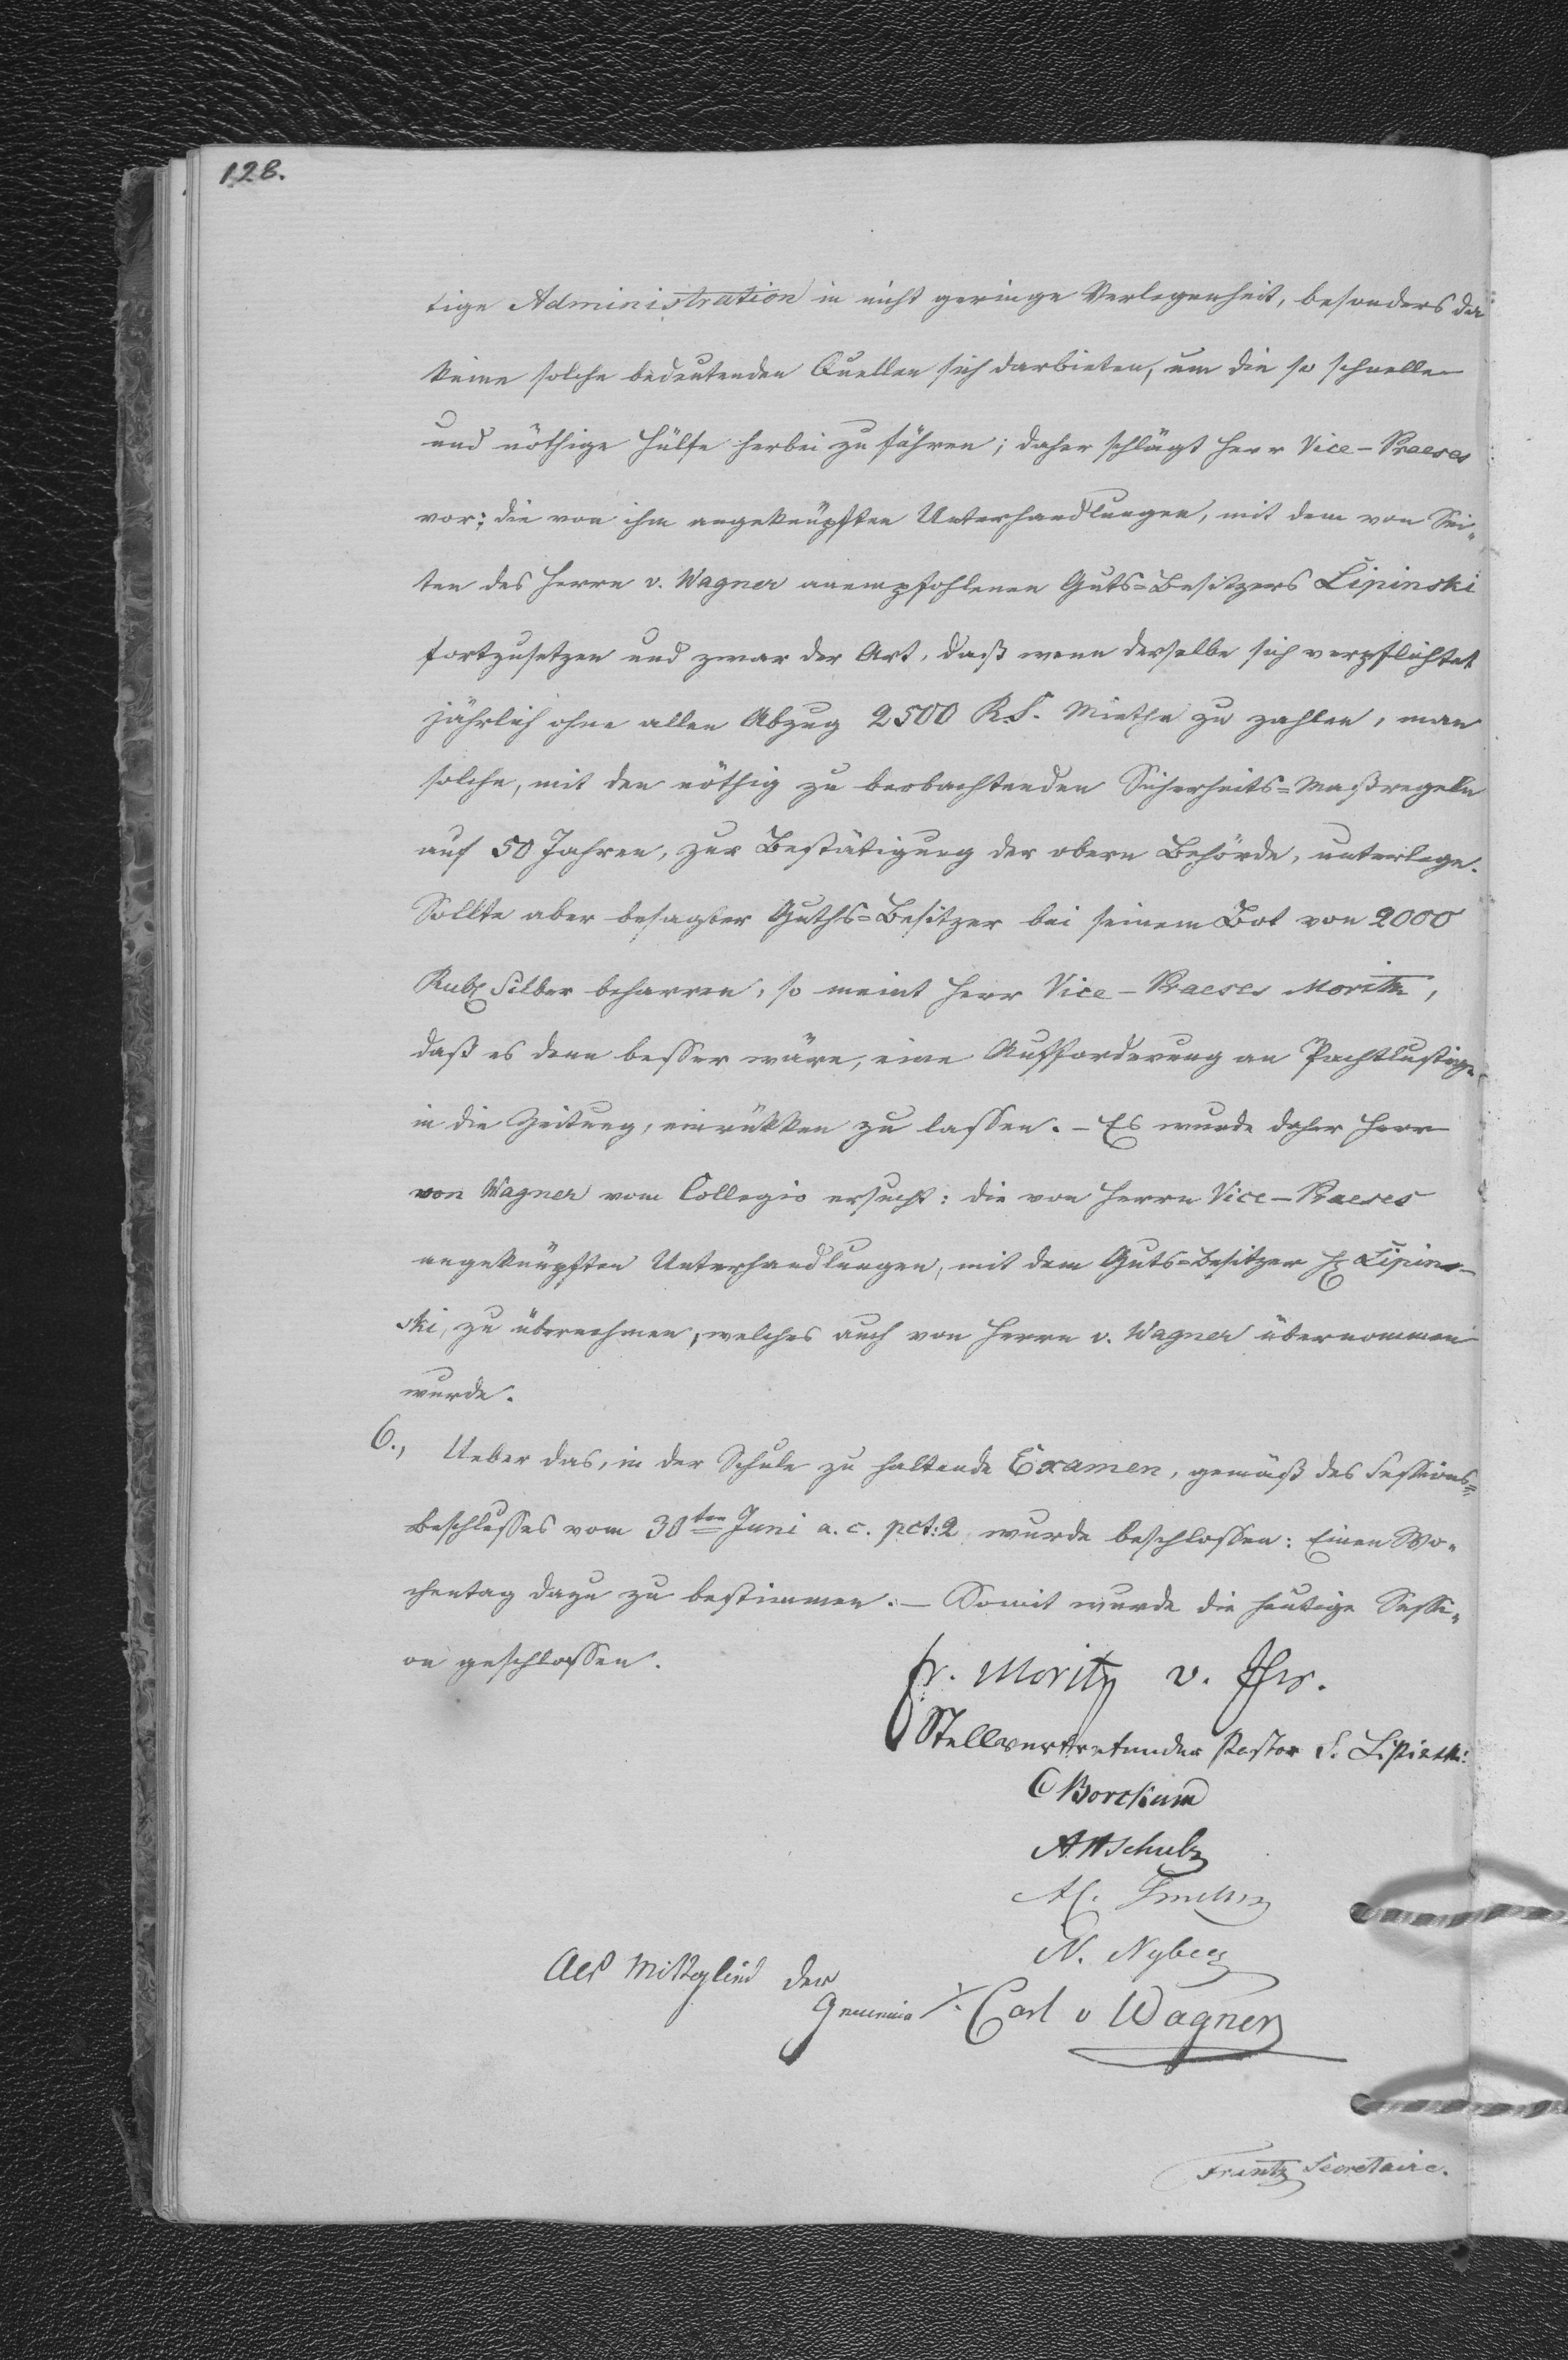 128.
tige Administration in nicht geringe Verlegenheit, besonders da
keine solche bedeutenden Quellen sich darbieten, um die so schnelle
und nöthige Hülfe herbei zu führen; daher schlägt Herr Vice-Praeses
vor: die von ihm angeknüpften Unterhandlungen, mit dem von Sei„
ten des Herrn v. Wagner anempfohlenen Guts=Besitzers Lipinski
fortzusetzen und zwar der Art, daß wenn derselbe sich verpflichtet
jährlich ohne allen Abzug 2500 R.S. Miethe zu zahlen, man
solche, mit den nöthig zu beobachtenden Sicherheits=Maßregeln
auf 50 Jahren, zur Bestätigung der obern Behörde, unterlege.
Sollte aber besagter Guths=Besitzer bei seinem Bot von 2000
Rub Silber beharren, so meint Herr Vice-Praeses Moritz,
daß es dann besser wäre, eine Aufforderung an Pachtlustige
in die Zeitung, einrükken zu lassen. - Es wurde daher Herr
von Wagner vom Collegio ersucht: die von Herrn Vice-Praeses
angeknüpften Unterhandlungen, mit dem Guts=Besitzer H Lipin-
ski, zu übernehmen, welches auch von Herrn v. Wagner übernommen
wurde.
6., Ueber das, in der Schule zu haltende Examen, gemäß des Sessions=
beschlusses vom 30ten Juni a. c. pct: 2 wurde beschlossen: Einen Wo„
chentag dazu zu bestimmen. - Somit wurde die heutige Sessi„
on geschlossen.
fr. Moritz v.
Stellvertretender Pastor S. Lipinski
C Borckum
A Schulz
N. Nyberg
Als Mitglied der
Gemeinde Carl v Wagner
Frantz Secretaire.